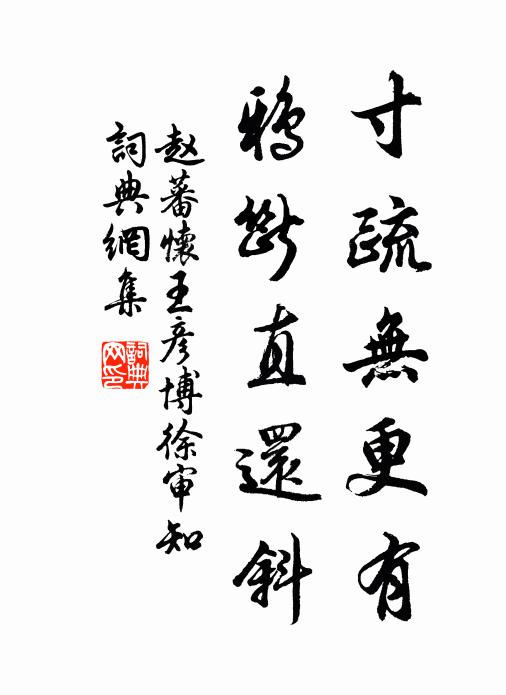 寸疏無更有
鴉斷直還斜
赵蕃懷王彦博徐审知
詞典網集
詞典网印